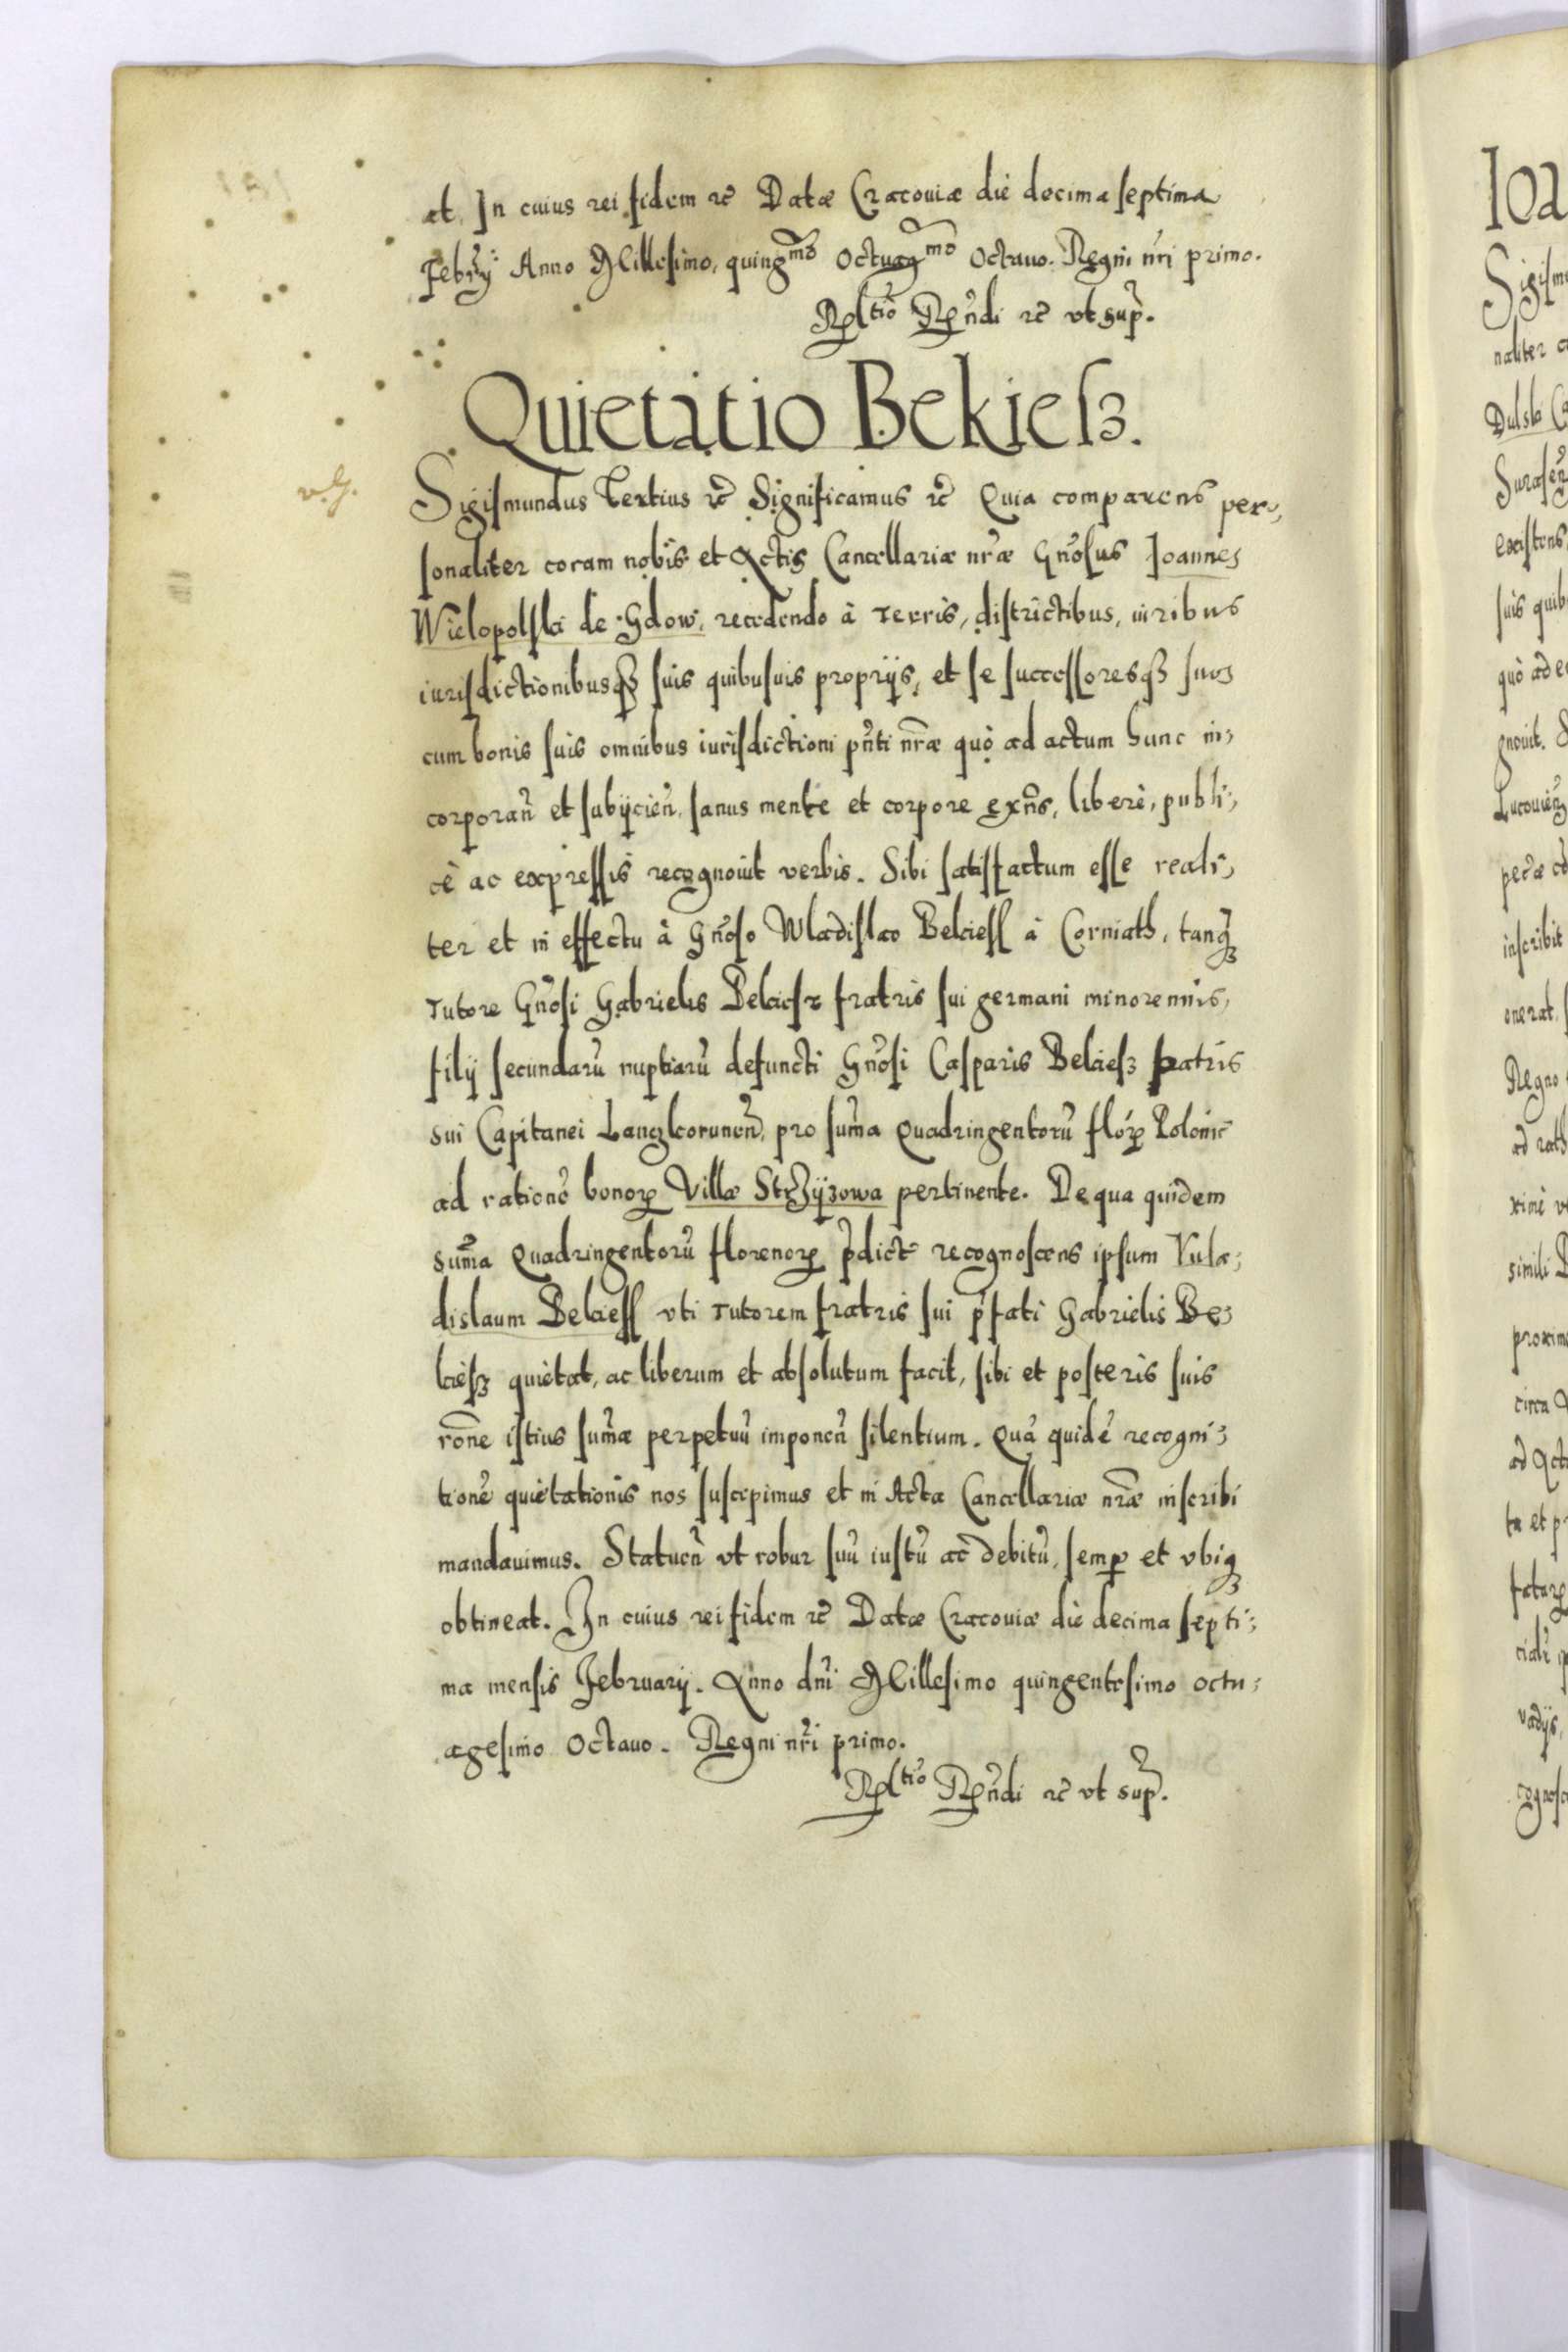 at. In cuius rei fidem etc̃ Datæ Cracouiæ die decima septima
Febrꝛij Anno Millesimo, quingᵐᵒ Octuagᵐᵒ Octauo. Regni nr̃i primo.
Rꝑltio Rꝑñdi etc̃ vt sup̃.
Quietatio Bekiesz.
v. g.
Sigismundus Tertius etc̃ Significamus etc̃ Quia comparens per,
sonaliter coram nobis et Actis Cancellariæ nr̃æ Gñosus Joannes
Wielopolski de Gdow, recedendo à Terris, districtibus, iuribus
iurisdictionibusqꝫ suis quibusuis proprijs, et se successoresqꝫ suos
cum bonis suis omnibus iurisdictioni pñti nr̃æ quò ad actum hunc in,
corporañ et subijcień, sanus mente et corpore exñs, liberè, publi,
cè ac expressis recognouit verbis. Sibi satisfactum esse reali,
ter et in effectu à Gñoso Wladislao Bekiess à Corniath, tanqꝫ
Tutore Gñosi Gabrielis Bekiesz fratris sui germani minorennis,
filij secundarũ nuptiarũ defuncti Gñosi Casparis Bekiesz patris
sui Capitanei Lanczkorunen̄, pro sum̃a Quadringentorũ flóꝝ Polonic̃
ad rationẽ bonoꝝ Villæ Strzÿzowa pertinente. De qua quidem
sum̃a Quadringentorũ florenoꝝ p̃dict̃ recognoscens ipsum Vula,
dislaum Bekiess vti Tutorem fratris sui p̃fati Gabrielis Be,
kiesz quietat, ac liberum et absolutum facit, sibi et posteris suis
rõne istius sum̃æ perpetuũ imponeñ silentium. Quã quidẽ recogni,
tionẽ quietationis nos suscepimus et in Acta Cancellariæ nr̃æ inscribi
mandauimus. Statueñ vt robur suũ iustũ ac debitũ, semꝑ et vbiqꝫ
obtineat. In cuius rei fidem etc̃ Datæ Cracouiæ die decima septi,
ma mensis Februarij. Anno dñi Millesimo quingentesimo octu,
agesimo Octauo. Regni nr̃i primo.
Rꝑltio Rꝑñdi etc̃ vt sup̃.